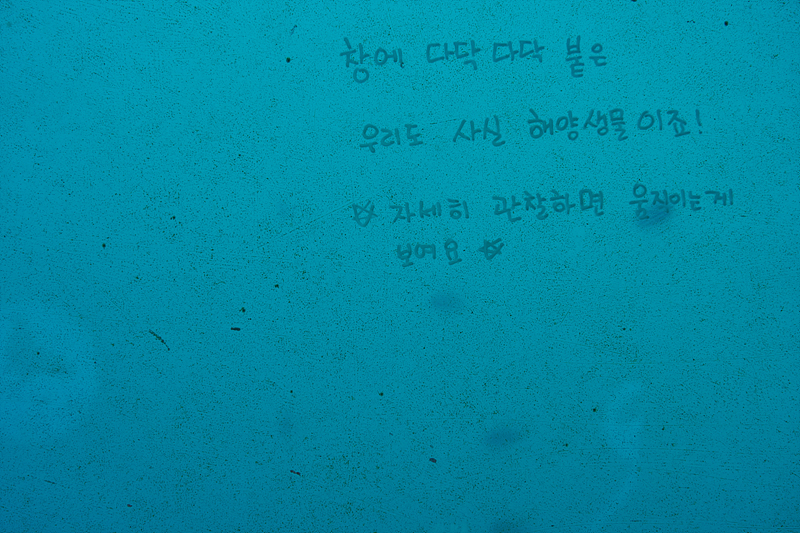 창에 다닥다닥 붙은
우리도 사실 해양생물이죠!
☆ 자세히 관찰하면 움직이는게
보여요 ☆